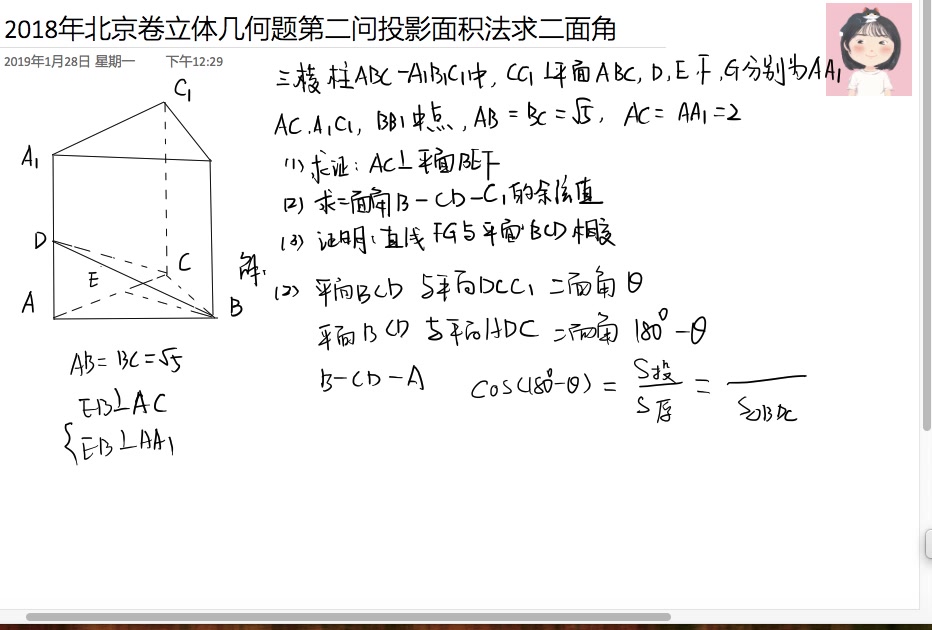 2018年北京卷立体几何题第二问投影面积法求二面角
2019年1月28日 星期一 下午12:29
三棱柱ABC-A1B1C1中, CC1⊥平面ABC, D,E,F,G分别为AA1
AC,A1C1, BB1中点, AB=BC=√5, AC=AA1=2
(1) 求证: AC⊥平面BEF
(2) 求二面角B-CD-C1的余弦值
(3) 证明: 直线FG与平面BCD相交
解:
(2) 平面BCD与平面DCC1二面角θ
平面BCD与平面ADC二面角180°-θ
B-CD-A
cos(180°-θ) = S投/S原 = /S△BDC
C1
A1
D
E
C
A
B
AB=BC=√5
EB⊥AC
{EB⊥AA1